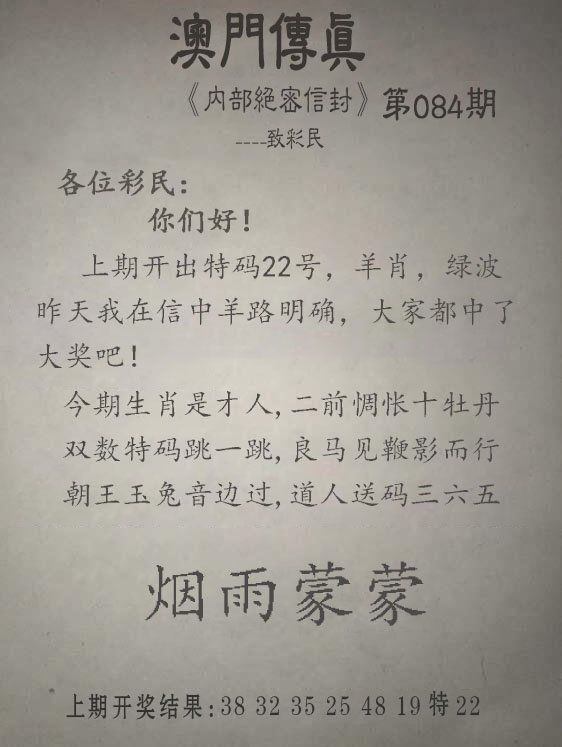 澳門傳真
《内部絕密信封》第084期
----致彩民
各位彩民：
你们好！
上期开出特码22号，羊肖，绿波
昨天我在信中羊路明确，大家都中了
大奖吧！
今期生肖是才人,二前惆怅十牡丹
双数特码跳一跳,良马见鞭影而行
朝王玉兔音边过,道人送码三六五
烟雨蒙蒙
上期开奖结果:38 32 35 25 48 19特22